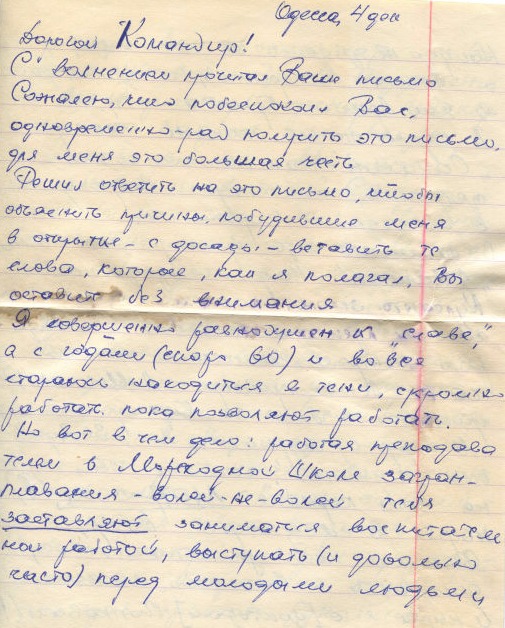 Одесса, 4 дек
Дорогой Командир!
С волнением прочитал Ваше письмо
Сожалею, что побеспокоил Вас,
одновременно-рад получить это письмо,
для меня это большая честь
Решил ответить на это письмо, чтобы
объяснить причины, побудившие меня
в открытке - с досады - вставить те
слова, которые, как я полагал, Вы
оставите без внимания
Я совершенно равнодушен к "славе",
а с годами (скоро 60) и вовсе
стараюсь находиться в тени, скромно
работать пока позволяют работать.
Но вот в чем дело: работая преподава
телем в Мореходной Школе загран-
плавания - волей-не-волей тебя
заставляют заниматься воспитатель
ной работой, выступать (и довольно
часто) перед молодыми людьми